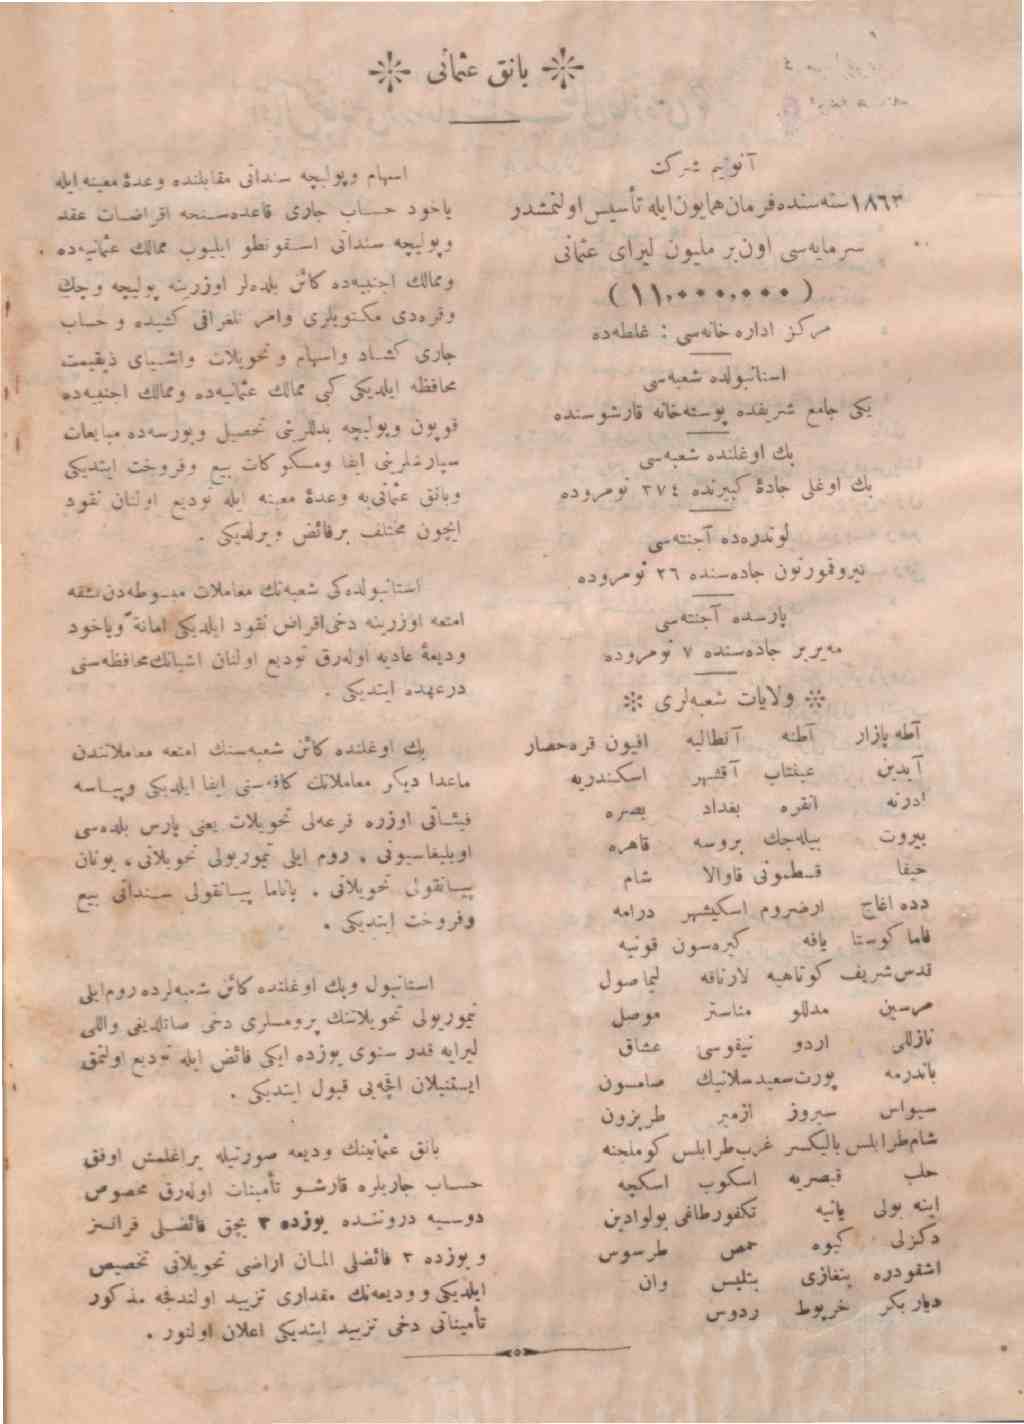 بانق عثمانی
آنونیم شركت
١٨٦٣ سنه‌سنده فرمان همایون ایله تأسیس اولنمشدر
سرمایه‌سی اون بر ملیون لیرای عثمانی
( ١١,٠٠٠,٠٠٠ )
مركز اداره خانه‌سی : غلطه‌ده
استانبولده شعبه‌سی
یكی جامع شریفده پوسته‌خانه قارشوسنده
بك اوغلنده شعبه‌سی
بك اوغلی جادهٔ كبیرنده ٢٧٤ نومروده
لوندره‌ده آجنته‌سی
تیروقمورتون جاده‌سنده ٢٦ نومروده
پارسده آجنته‌سی
مه‌یربر جاده‌سنده ٧ نومروده
ولایات شعبه‌لری
آطه پازار آطنه آنطالیه افیون قره‌حصار
آیدین عینتاب آقشهر اسكندریه
ادرنه انقره بغداد بصره
بیروت بیله‌جك بروسه قاهره
حیفا قسطمونی قاوالا شام
دده اغاج ارضروم اسكیشهر درامه
فاماكوستا یافه كیره‌سون قونیه
قدس شریف كوتاهیه لارناقه لیماصول
مرسین مدللو مناستر موصل
نازللی اردو نیقوسی عشاق
باندرمه پورت‌سعید سلانیك صامسون
سیواس سیروز ازمیر طربزون
شام‌طرابلس بالیكسر غرب‌طرابلس كوملجنه
حلب قیصریه اسكوب اسكچه
اینه بولی یانیه تكفورطاغی بولوادین
دكزلی كیوه حمص طرسوس
اشقودره بنغازی بتلیس وان
دیاربكر خرپوط ردوس
اسهام وپولیچه سنداتی مقابلنده وعدهٔ معینه ایله
یاخود حساب جاری قاعده‌سنجه اقراضات عقد
وپولیچه سنداتی اسقونطو ایلیوب ممالك عثمانیه‌ده
وممالك اجنبیه‌ده كائن بلده‌لر اوزرینه پولیچه وچك
وقره‌دی مكتوبلری واصر تلغرافی كشیده وحساب
جاری كشاد واسهام وتحویلات واشیای ذیقیمت
محافظه ایلدیكی كبی ممالك عثمانیه‌ده وممالك اجنبیه‌ده
قوپون وپولیچه بدللرینی تحصیل وبورسه‌ده مبایعات
سپارشلرینی ایفا ومسكوكات بیع وفروخت ایتدیكی
وبانق عثمانی‌یه وعدهٔ معینه ایله تودیع اولنان نقود
ایچون مختلف برفائض ویرلدیكی .
استانبولده‌كی شعبه‌نك معاملات مبسوطه‌دن بشقه
امتعه اوزرینه دخی اقراض نقود ایلدیكی امانة ویاخود
ودیعهٔ عادیه اوله‌رق تودیع اولنان اشیانك محافظه‌سنی
درعهده ایتدیكی .
بك اوغلنده كائن شعبه‌سنك امتعه معاملاتندن
ماعدا دیكر معاملاتك كافه‌سنی ایفا ایلدیكی وپیاسه
فیئاتی اوزره قرعه‌لی تحویلات یعنی پارس بلده‌سی
اوبلیغاسیونی ، روم ایلی تیموریولی تحویلاتی ، یونان
پیانقولی تحویلاتی ، پاناما پیانقولی سنداتی بیع
وفروخت ایتدیكی .
استانبول وبك اوغلنده كائن شعبه‌لرده روم‌ایلی
تیموریولی تحویلاتنك پرومسلری دخی صاتلدیغی واللی
لیرایه قدر سنوی یوزده ایكی فائض ایله تودیع اولنمق
ایستنیلان اقچه‌یی قبول ایتدیكی .
بانق عثمانینك ودیعه صورتیله براغلمش اوفق
حساب جاریلره قارشو تأمینات اوله‌رق مخصوص
دوسیه دروننده یوزده ٣ بچق فائضلی فرانسز
ویوزده ٣ فائضلی المان اراضی تحویلاتی تخصیص
ایلدیكی وودیعه‌نك مقداری تزیید اولندقجه مذكور
تأمیناتی دخی تزیید ایتدیكی اعلان اولنور .